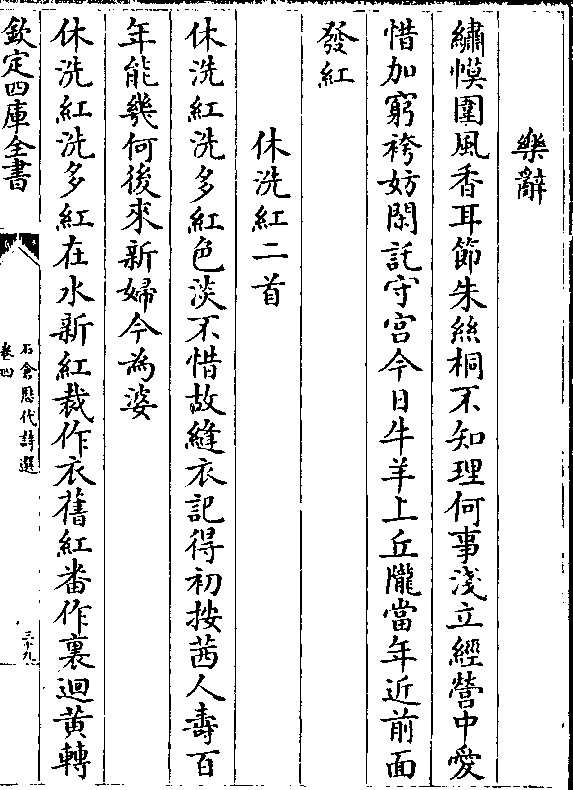 樂辭
繡幙圍風香耳節朱絲桐不知理何事淺立經營中愛
惜加窮袴妨閑託守宮今日牛羊上丘隴當年近前面
發紅
休洗紅二首
休洗紅洗多紅色淡不惜故縫衣記得初按茜人壽百
年能幾何後來新婦今為婆
休洗紅洗多紅在水新紅裁作衣舊紅番作裏迴黃轉
欽定四庫全書
石倉歷代詩選
卷四
三十九